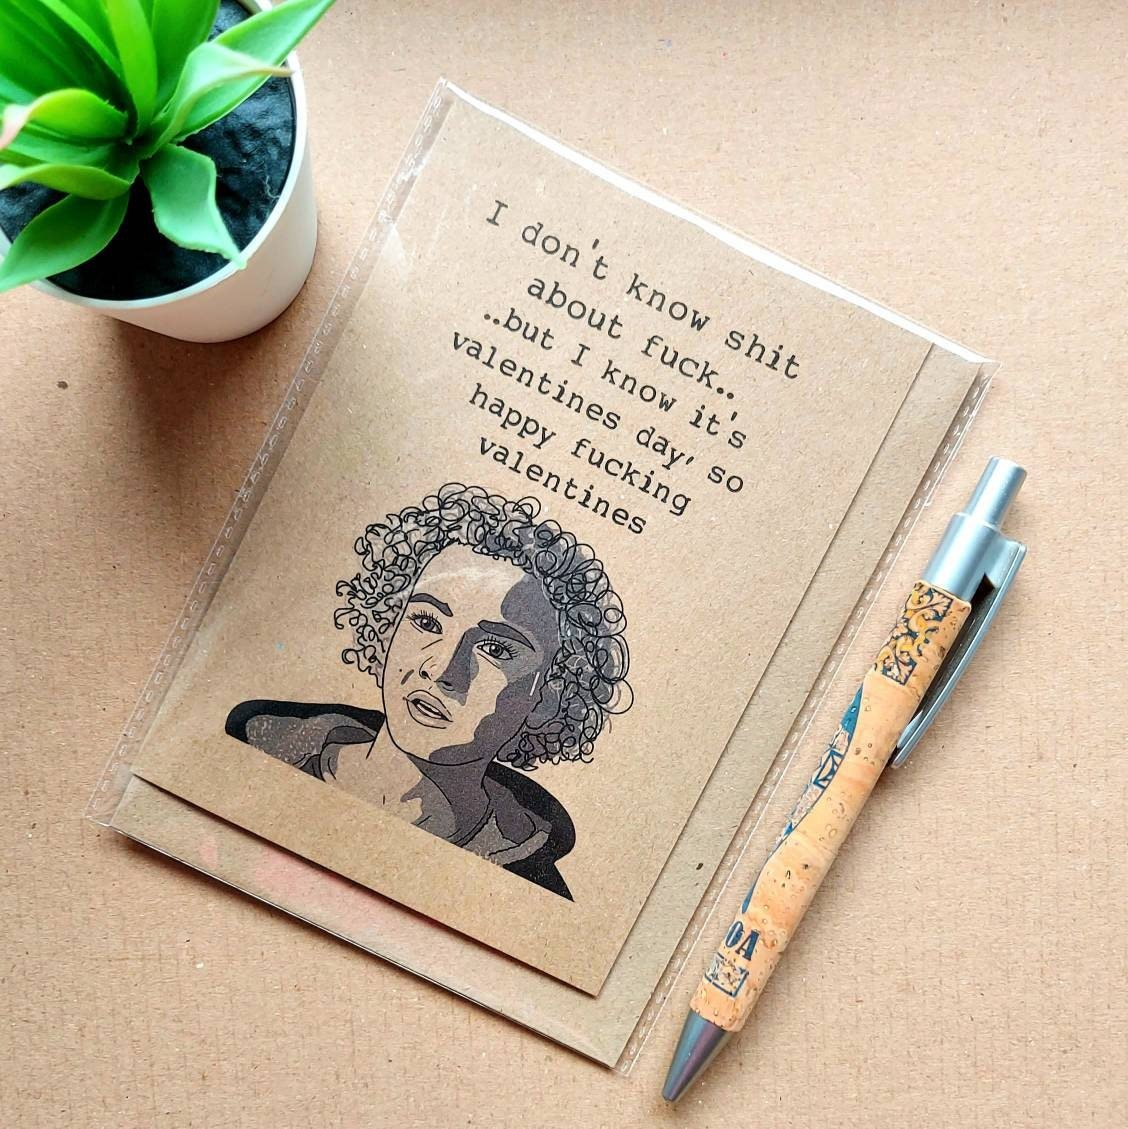 I don't know shit
about fuck..
..but I know it's
valentines day' so
happy fucking
valentines
OA